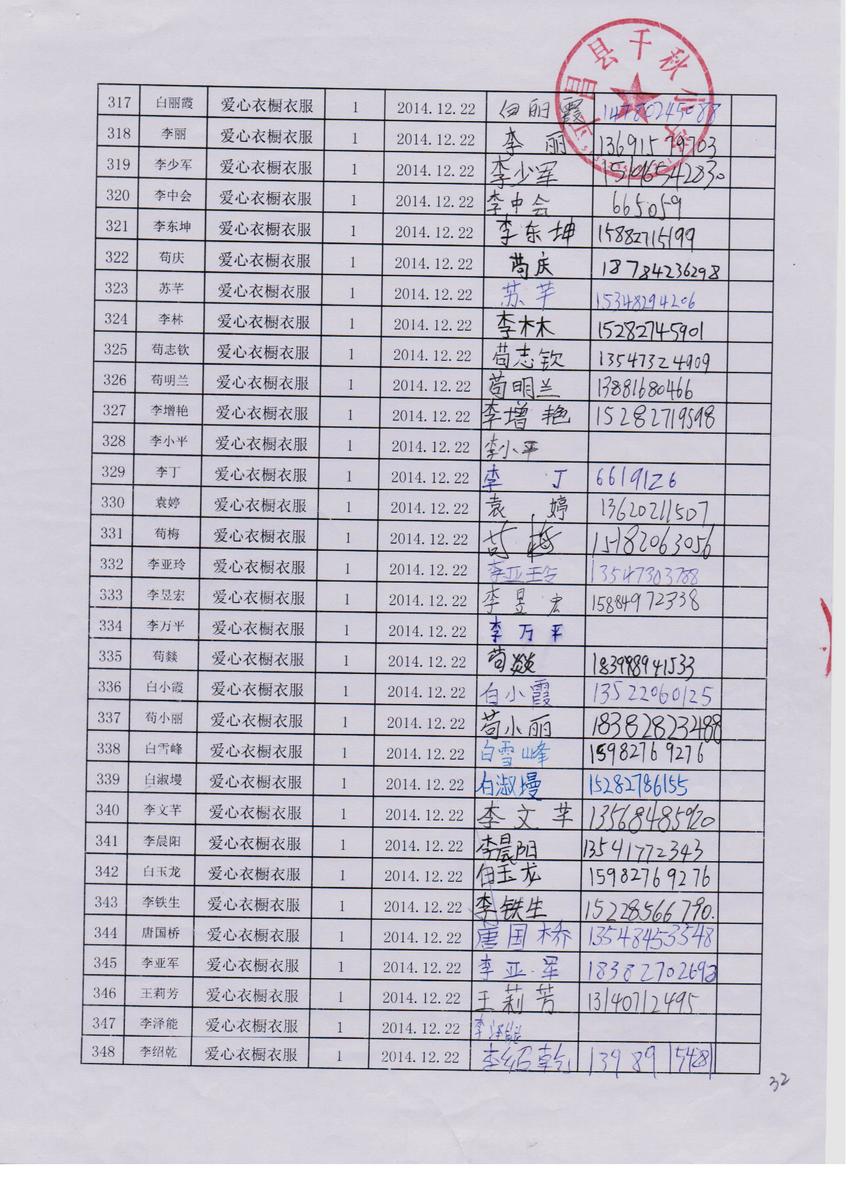 昌县千秋小学
317 白丽霞 爱心衣橱衣服 1 2014.12.22 白丽霞
318 李丽 爱心衣橱衣服 1 2014.12.22 李丽
319 李少军 爱心衣橱衣服 1 2014.12.22 李少军
320 李中会 爱心衣橱衣服 1 2014.12.22 李中会 665059
321 李东坤 爱心衣橱衣服 1 2014.12.22 李东坤 15882715199
322 苟庆 爱心衣橱衣服 1 2014.12.22 苟庆 18784236298
323 苏芊 爱心衣橱衣服 1 2014.12.22 苏芊 15348294206
324 李林 爱心衣橱衣服 1 2014.12.22 李林 15282745901
325 苟志钦 爱心衣橱衣服 1 2014.12.22 苟志钦 13547324909
326 苟明兰 爱心衣橱衣服 1 2014.12.22 苟明兰 13881680466
327 李增艳 爱心衣橱衣服 1 2014.12.22 李增艳 15282719598
328 李小平 爱心衣橱衣服 1 2014.12.22 李小平
329 李丁 爱心衣橱衣服 1 2014.12.22 李丁 6619126
330 袁婷 爱心衣橱衣服 1 2014.12.22 袁婷 13620211507
331 苟梅 爱心衣橱衣服 1 2014.12.22 苟梅 15182063056
332 李亚玲 爱心衣橱衣服 1 2014.12.22 李亚玲 13547303788
333 李昱宏 爱心衣橱衣服 1 2014.12.22 李昱宏 15884972338
334 李万平 爱心衣橱衣服 1 2014.12.22 李万平
335 苟燚 爱心衣橱衣服 1 2014.12.22 苟燚 18398941533
336 白小霞 爱心衣橱衣服 1 2014.12.22 白小霞 13522060125
337 苟小丽 爱心衣橱衣服 1 2014.12.22 苟小丽 18382823488
338 白雪峰 爱心衣橱衣服 1 2014.12.22 白雪峰 15982769276
339 白淑墁 爱心衣橱衣服 1 2014.12.22 白淑墁 15282786155
340 李文芊 爱心衣橱衣服 1 2014.12.22 李文芊 13568485920
341 李晨阳 爱心衣橱衣服 1 2014.12.22 李晨阳 13541772343
342 白玉龙 爱心衣橱衣服 1 2014.12.22 白玉龙 15982769276
343 李铁生 爱心衣橱衣服 1 2014.12.22 李铁生 15228566790.
344 唐国桥 爱心衣橱衣服 1 2014.12.22 唐国桥 13548453548
345 李亚军 爱心衣橱衣服 1 2014.12.22 李亚军
346 王莉芳 爱心衣橱衣服 1 2014.12.22 王莉芳 13140712495
347 李泽能 爱心衣橱衣服 1 2014.12.22 李泽能
348 李绍乾 爱心衣橱衣服 1 2014.12.22 李绍乾
32